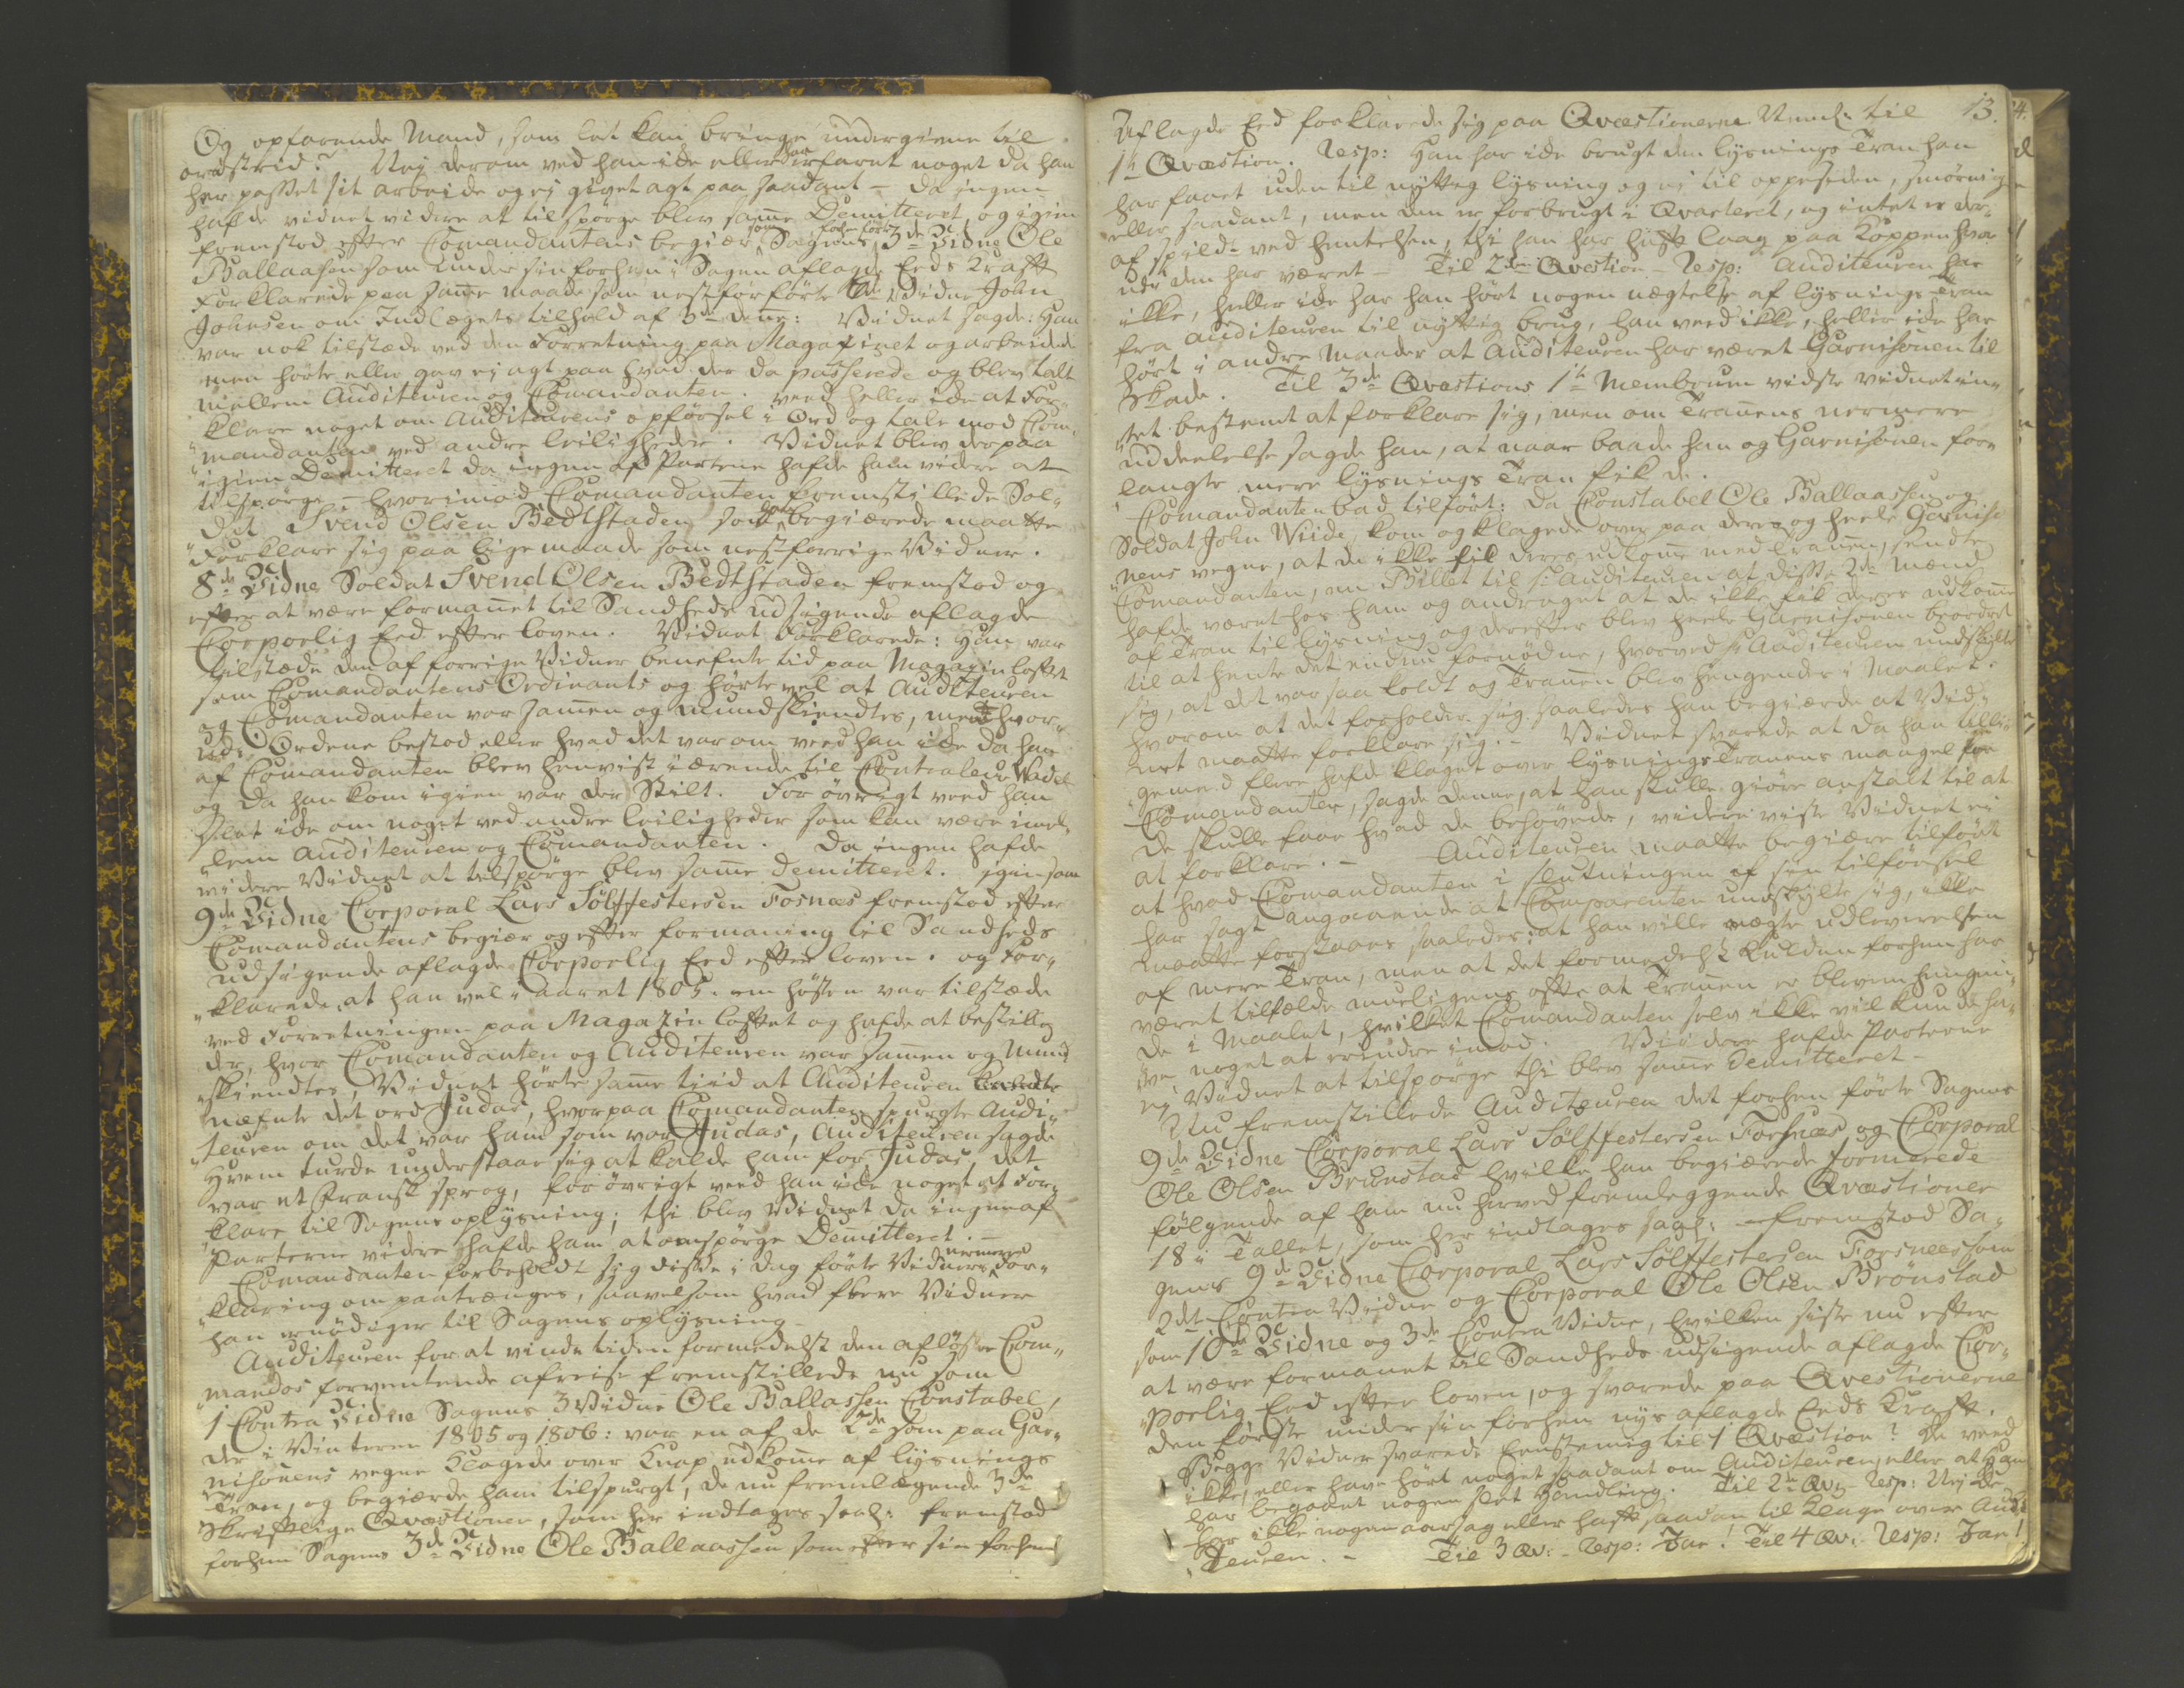 Og opfarende Mand, som let kan bringe undergivne til
ordstrid? Nej derom ved han ike eller har erfaret noget da han
har passet sit arbeide og ei givet agt paa saadant - da ingen
hafde vidnet videre at tilspørge blev samme Demitteret, og igien
fremstod efter Comandantens begiær som Sagens forhen førte 3de Vidne Ole
Ballaasen som under sin forhen i Sagen aflagde Eeds Kraft
Forklarede paa samme maade som nestforførte Vidne John
Johnsen om Indlægets tilhold af 3de denne: Vidnet sagde: Han
var nok tilstæde ved den Forretning paa Magasinet og arbeidede
men hørte eller gav ei agt paa hvad der da passerede og blev talt
mellem Auditeuren og Comandanten. veed heller ike at For„
„klare noget om Auditeurens opførsel i Ord og tale mod Com„
„mandanten ved andre leiligheder. Vidnet blev derpaa
igien Demitteret da ingen af Partene hafde ham videre at
tilspørge - hvorimod Comandanten fremstillede Sol„
„dat Svend Olsen Bedtstaden som begiærede maatte
Forklare sig paa lige maade som nestforrige Vidner.
8de Vidne Soldat Svend Olsen Bedtstaden fremstod og
efter at være formanet til Sandheds udsigende aflagde
Corporlig Eed efter loven. Vidnet Forklarede: Han var
tilstæde den af forrige Vidner benefnte tid paa Magazin loftet
som Comandantens Ordinants og hørte vel at Auditeuren
og Comandanten var sammen og mundskiendtes, men hvor„
udi Ordene bestod eller hvad det var om veed han ike da han
af Comandanten blev henvist i ærende til Contraleur Wadel
og da han kom igien var der Stilt. For øvrigt veed han
slet ike om noget ved andre leiligheder som kan være imel„
„lem Auditeuren og Comandanten. Da ingen hafde
videre Vidnet at tilspørge blev samme demitteret. igien som
9de Vidne Corporal Lars Sølffestersen Fosnæs fremstod efter
Comandantens begiær og efter formaning til Sandheds
udsigende aflagde Corporlig Eed efter loven. og For„
„klarede, at han vel i aaret 1805. om høsten var tilstæde
ved Forretningen paa Magazin loftet og hafde at bestille
der, hvor Comandanten og Auditeuren var sammen og Mund
„skiendtes, Vidnet hørte samme tiid at Auditeuren
næfnte det ord Judas, hvorpaa Comandanten spurgte Audi„
„teuren om det var ham som var Judas, Auditeuren sagde
Hvem turde understaae sig at kalde ham for Judas det
var et Fransk sprog, for øvrigt veed han ike noget at For„
„klare til Sagens oplysning; thi blev Vidnet da ingen af
Parterne videre hafde ham at omspørge Demitteret.-
Comandanten forbeholdt sig disse i dag førte Vidners nermere For„
„klaring om paatrænges, saavelsom hvad flere Vidner
han nødiges til Sagens oplysning-
Auditeuren for at vinde tiden formedelst den afløste Com„
„mandos forventende afreise fremstillede nu som
1 Contra Vidne Sagens 3 Vidne Ole Ballassen Constabel,
der i Vinteren 1805 og 1806: var en af de 2de som paa Gar„
nisonens vegne klagede over Knap udkomme af lysnings
Tran, og begiærde ham tilspurgt, de nu fremlægende 3de
Skriftlige Qvæstioner, som her indtages saal: fremstod
forhen Sagens 3de Vidne Ole Ballaassen som efter sin forhen
13.
Aflagde Eed forklarede sig paa Qvæstionerne Neml: til
1te Qvæstion. Resp: Han har ike brugt den lysnings Tran han
har faaet uden til nyttig lysning og ei til oppesiden, smørning
eller saadant, men den er forbrugt i Qvarteret, og intet er der„
af spildt ved hentelsen, thi han har havt laag paa Koppen hvor
udi den har været - Til 2den Qvæstion - Resp: Auditeuren har
ikke, heller ike har han hørt nogen nægtelse af lysnings Tran
fra Auditeuren til nyttig brug, han veed ikke, heller ike har
hørt i andre Maader at Auditeuren har været Garnisonen til
Skade. Til 3de Qvæstions 1te Membrum vidste vidnet in„
„tet bestemt at forklare sig, men om Tranens nermere
uddeelelse sagde han, at naar baade han og Garnisonen for„
langte mere lysnings Tran fik de.
Comandanten bad tilført: da Constabel Ole Ballaassen og
Soldat John Wiide, kom og klagede over paa deres og heele Garniso
„nens vegne, at de ikke fik deres udkomme med Tranen, sendte
Comandanten, en Billet til Hr: Auditeuren at disse 2de Mænd
hafde været hos ham og andraget at de ikke fik deres udkomme
af Tran til lysning og derefter blev heele Garnisonen beordret
til at hente det endnu fornødne, hvorved Hr Auditeuren undskyldte
sig, at det var saa koldt og Tranen blev hengende i Maalet.
hvorom at det forholder sig saaledes han begiærde at Vid„
„net maatte forklare sig.- Vidnet svarede at da han tilli„
„gemed flere hafde klaget over lysnings Tranens mangel for
Comandanten, sagde denne, at han skulle giøre anstalt til at
de skulle faae hvad de behøvede, videre viste Vidnet ei
at forklare.- Auditeuren maatte begiære tilført
at hvad Comandanten i slutningen af sin tilførsel
har sagt angaaende at Comparenten undskylte sig, ikke
maatte forstaaes saaledes: at han ville nægte udleverelsen
af mere Tran, men at det formedelst Kulden forhen har
været tilfælde mueligens ofte at Tranen er bleven hengen„
de i Maalet, hvilket Comandanten selv ikke vil kunde ha„
ve noget at erindre imod. Viidere hafde Parterne
ei Vidnet at tilspørge thi blev samme demitteret-
Nu fremstillede Auditeuren det forhen førte Sagens
9de Vidne Corporal Lars Sølffestersen Forsnæs og Corporal
Ole Olsen Brunstad hvilke han begiærede formerede
følgende af ham nu herved fremleggende Qvæstioner
18 i Tallet, som her indtages saal: - fremstod Sa„
gens 9de Vidne Corporal Lars Sølffestersen Forsnees som
2det Contra Vidne og Corporal Ole Olsen Brønstad
som 10de Vidne og 3de Contra Vidne, hvilken siste nu efter
at være formanet til Sandheds udsigende aflagde Cor„
„porlig Eed efter loven, og svarede paa Qvestionerne
den første under sin forhen nys aflagde Eeds Kraft.
Begge Vidner svarede Eenstemig til 1 Qvæstion? de veed
ikke, eller have hørt noget saadant om Auditeuren, eller at Han
har begaaet nogen slet Handling. Til 2de Qv: Resp: Nej de
har ikke nogen aarsag eller haft saadan til klage over Audi
„teuren.- Til 3 Qv: - Resp: Jae! Til 4 Qv: - Resp: Jae!